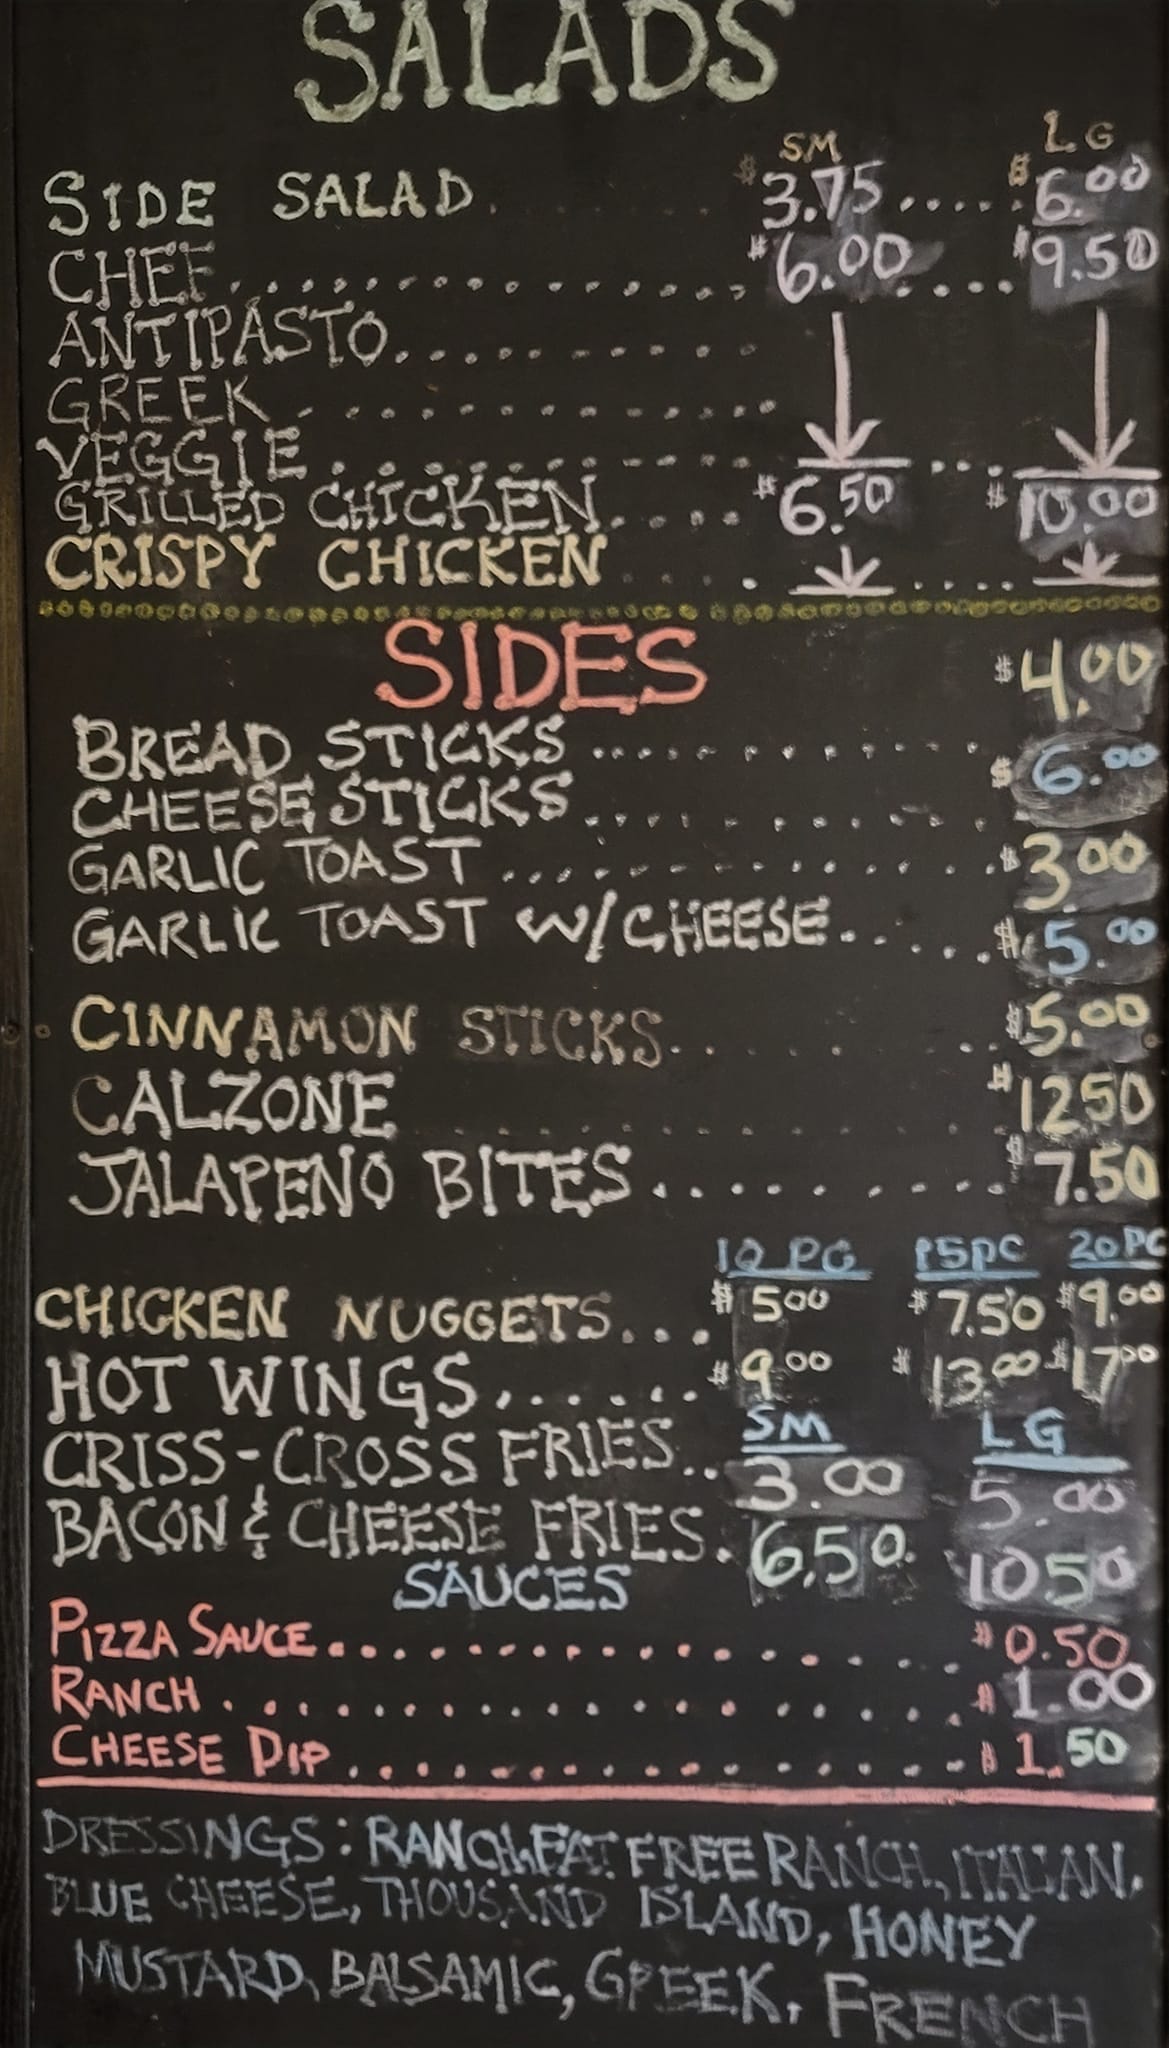 SALADS
SM LG
SIDE SALAD $3.75 $6.00
CHEF $6.00 $9.50
ANTIPASTO
GREEK
VEGGIE
GRILLED CHICKEN $6.50 $10.00
CRISPY CHICKEN
SIDES
BREAD STICKS $4.00
CHEESE STICKS $6.00
GARLIC TOAST $3.00
GARLIC TOAST W/CHEESE $5.00
CINNAMON STICKS $5.00
CALZONE $12.50
JALAPENO BITES $7.50
10 PC 15PC 20PC
CHICKEN NUGGETS $5.00 $7.50 $9.00
HOT WINGS $9.00 $13.00 $17.00
SM LG
CRISS-CROSS FRIES 3.00 5.00
BACON & CHEESE FRIES 6.50 10.50
SAUCES
PIZZA SAUCE $0.50
RANCH $1.00
CHEESE DIP $1.50
DRESSINGS: RANCH, FAT FREE RANCH, ITALIAN,
BLUE CHEESE, THOUSAND ISLAND, HONEY
MUSTARD, BALSAMIC, GREEK, FRENCH